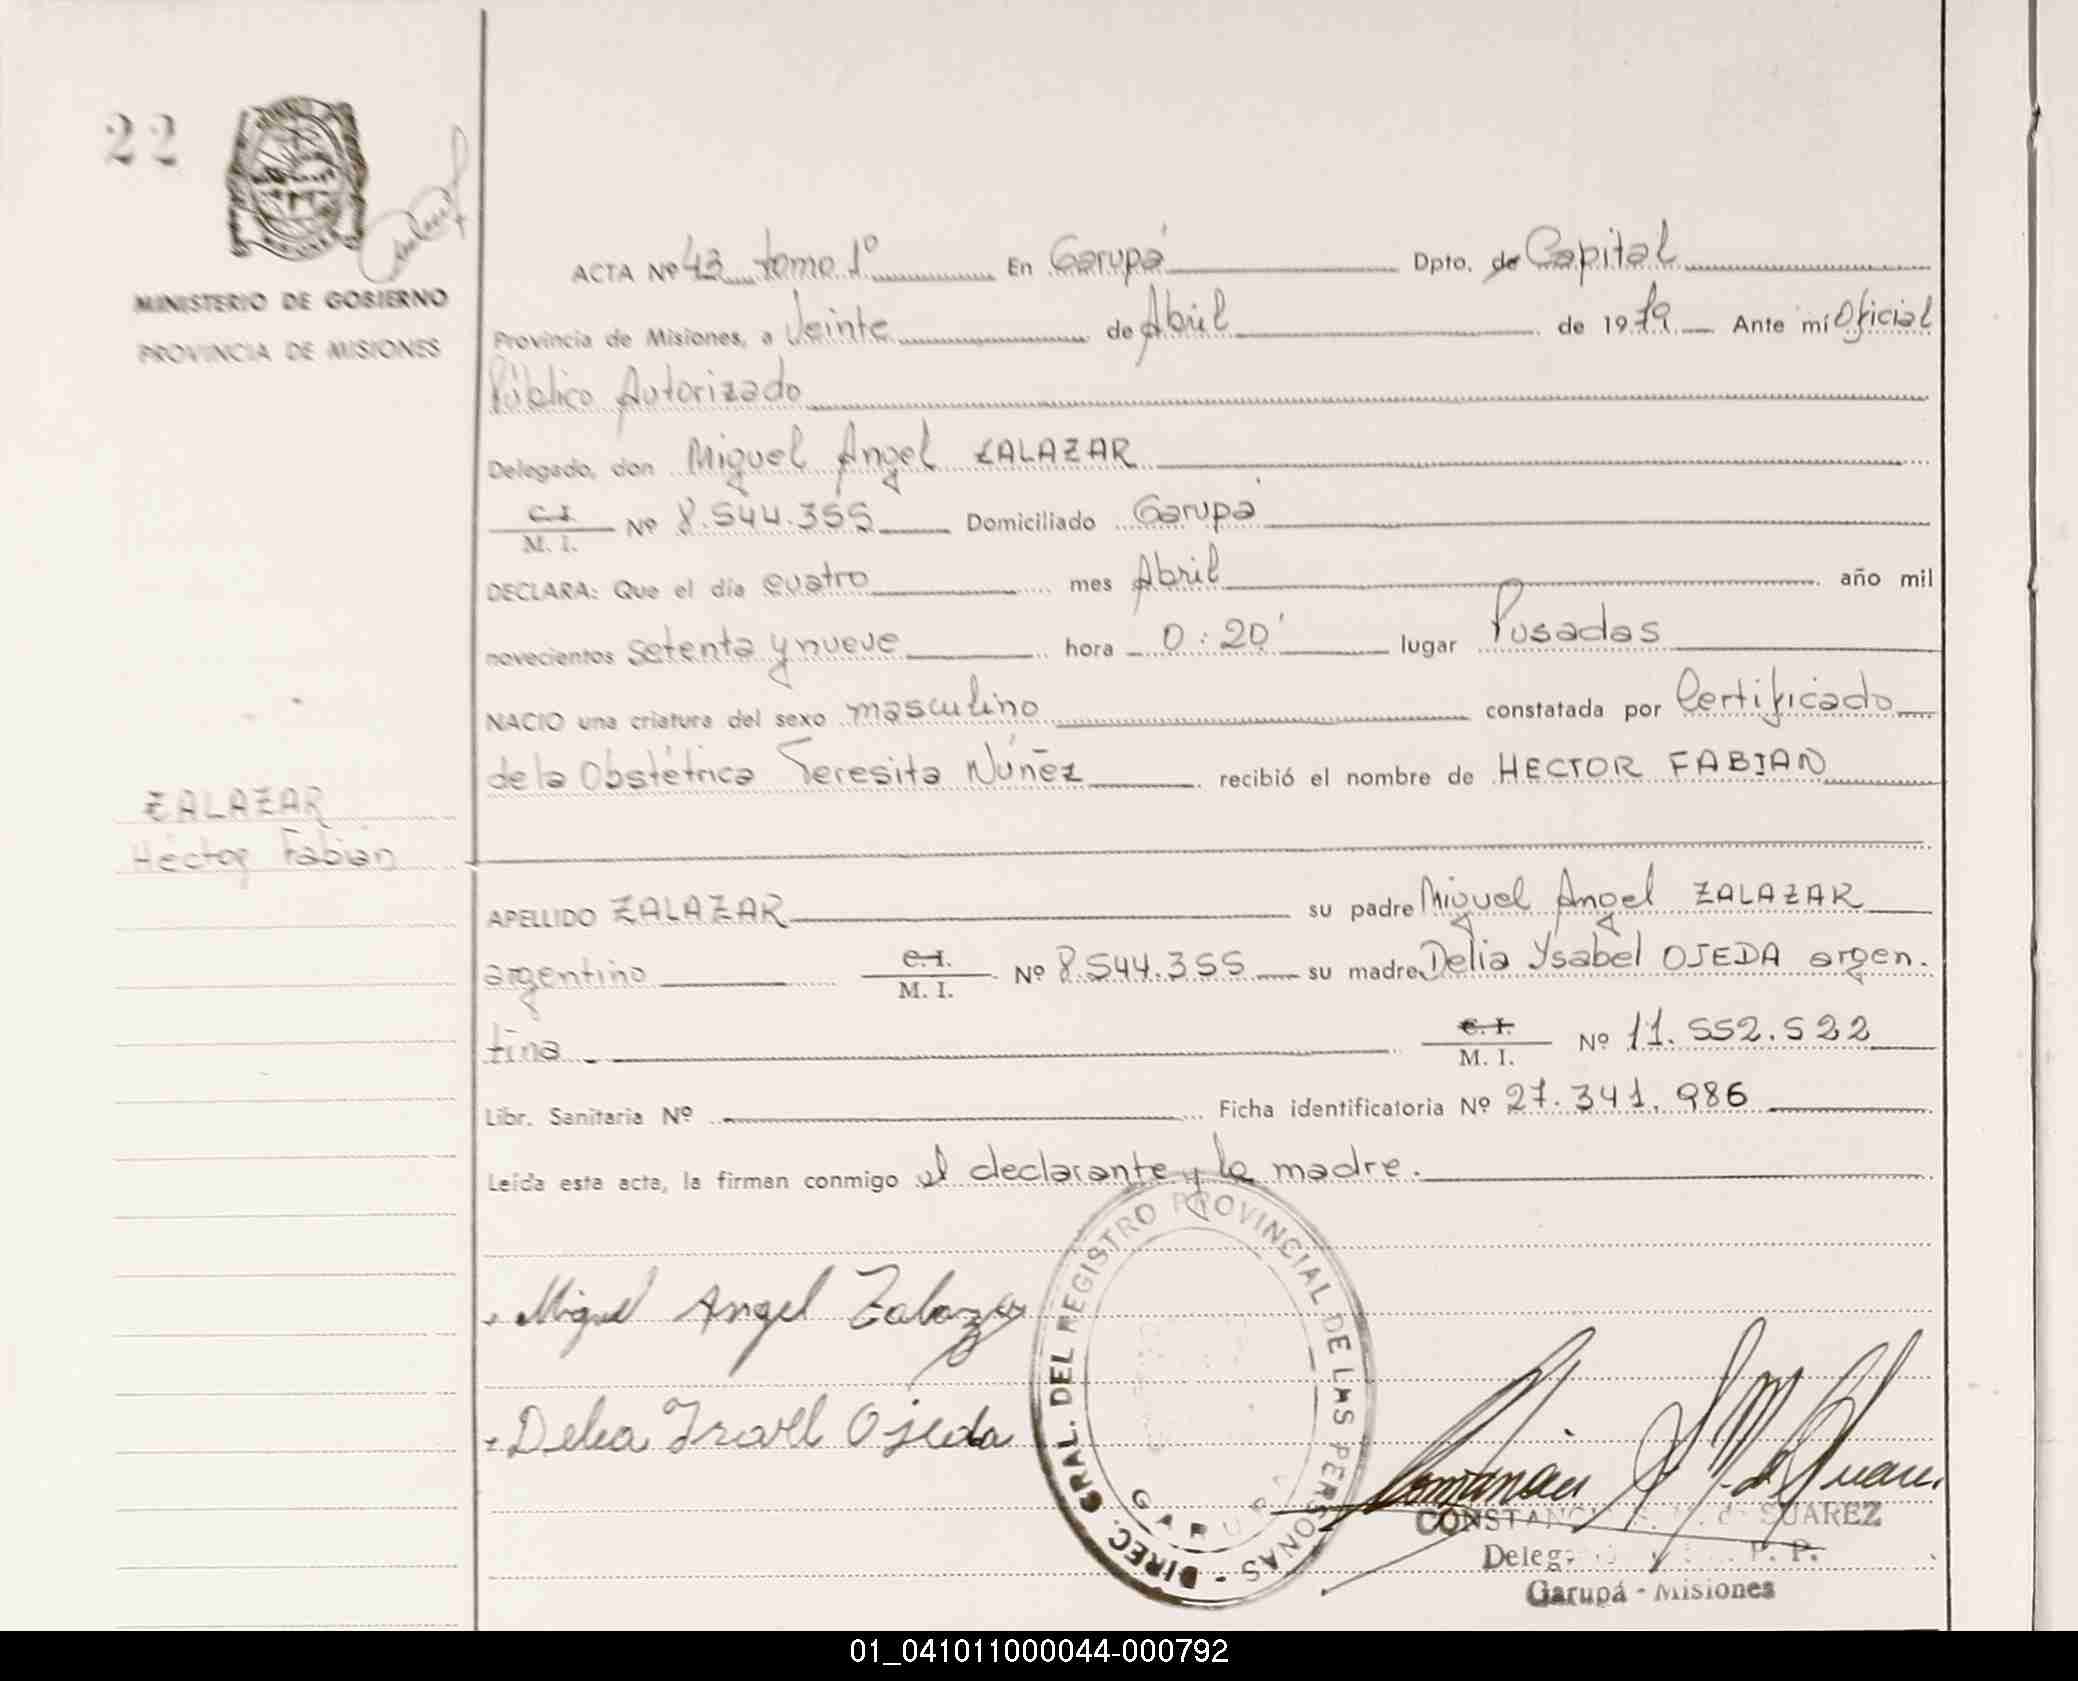 22
MINISTERIO DE GOBIERNO
PROVINCIA DE MISIONES
ACTA Nº 43 tomo 1º En Garupá Dpto. de Capital
Provincia de Misiones, a Veinte de Abril de 1979 Ante mí Oficial
Público Autorizado
Delegado, don Miguel Angel ZALAZAR
C.I. M. I. Nº 8.544.355 Domiciliado Garupá
DECLARA: Que el día cuatro mes Abril año mil
novecientos setenta y nueve hora 0:20' lugar Posadas
NACIO una criatura del sexo masculino constatada por Certificado
de la Obstétrica Teresita Núñez recibió el nombre de HECTOR FABIAN
ZALAZAR
Héctor Fabián
APELLIDO ZALAZAR su padre Miguel Angel ZALAZAR
argentino C.I. M. I. Nº 8.544.355 su madre Delia Ysabel OJEDA argen.
tina C.I. M. I. Nº 11.552.522
Libr. Sanitaria Nº Ficha identificatoria Nº 27.341.986
Leída esta acta, la firman conmigo el declarante y la madre.
Miguel Angel Zalazar
Delia Isabel Ojeda
DIREC. GRAL. DEL REGISTRO PROVINCIAL DE LAS PERSONAS -
GARUPA
de SUAREZ
P. P.
Garupá - Misiones
01_041011000044-000792